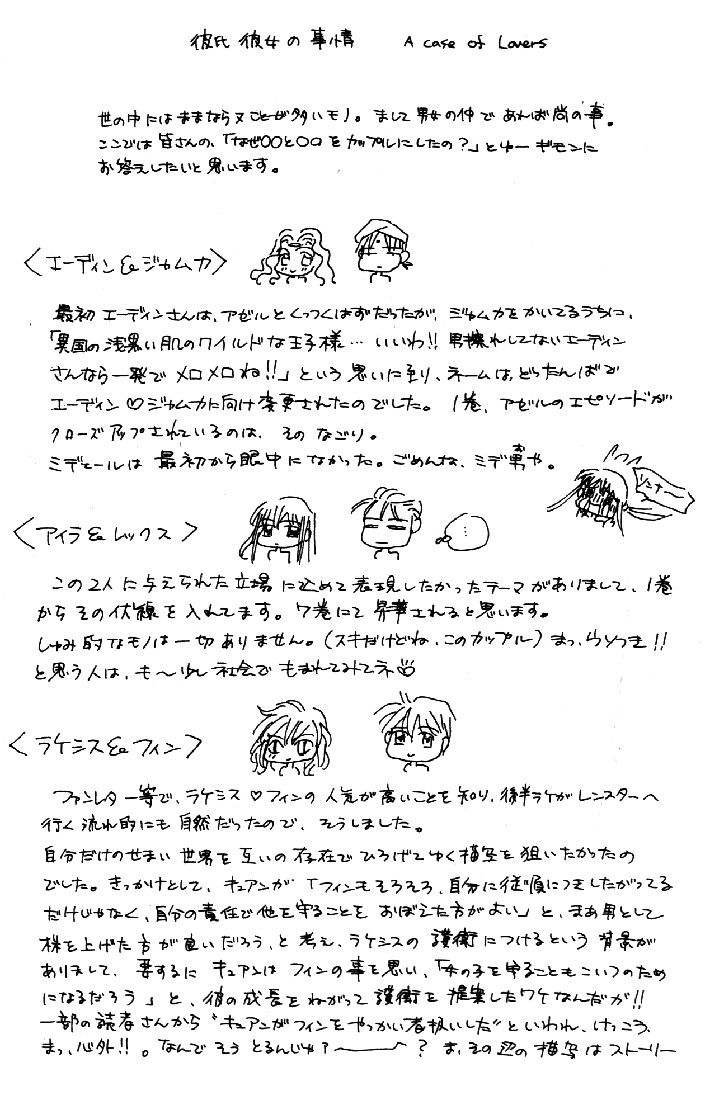 彼氏彼女の事情　A case of Lovers
世の中にはままならヌことが多いモノ。まして男女の仲であれば尚の事。
ここでは皆さんの、「なぜ〇〇と〇〇をカップルにしたの?」とゆーギモンに
お答えしたいと思います。
〈エーディン&ジャムカ〉
最初エーディンさんは、アゼルとくっつくはずだったが、ジャムカをかいてるうちに、
「異国の浅黒い肌のワイルドな王子様…いいわ!!男慣れしてないエーディン
さんなら一発でメロメロね!!」という思いに至り、ネームは、どったんばで
エーディン♡ジャムカに向け変更されたのでした。1巻、アゼルのエピソードが
クローズアップされているのは、そのなごり。
ミデェールは最初から眼中になかった。ごめんな、ミデ男や。
お
〈アイラ&レックス〉
…
この2人に与えられた立場に込めて表現したかったテーマがありまして、1巻
からその伏線を入れてます。7巻にて昇華されると思います。
しゅみ的なモノは一切ありません。(スキだけどね、このカップル)まっ、うそつき!!
と思う人は、も〜少し社会でもまれてみてネ
〈ラケシス&フィン〉
ファンレター等で、ラケシス♡フィンの人気が高いことを知り、後半ラケがレンスターへ
行く流れ的にも自然だったので、そうしました。
自分だけのせまい世界を互いの存在でひろげてゆく描写を狙いたかったの
でした。きっかけとして、キュアンが「フィンもそろそろ、自分に従順につきしたがってる
だけじゃなく、自分の責任で他を守ることをおぼえた方がよい」と、まあ男として
株を上げた方が良いだろう、と考え、ラケシスの護衛につけるという背景が
ありまして、要するにキュアンはフィンの事を思い、「女の子を守ることもこいつのため
になるだろう」と、彼の成長をねがって護衛を提案したワケなんだが!!
一部の読者さんから"キュアンがフィンをやっかい者扱いした"といわれ、けっこう、
まっ、心外!!。なんでそうとるんじゃ?〜?ま、その辺の描写はストーリー